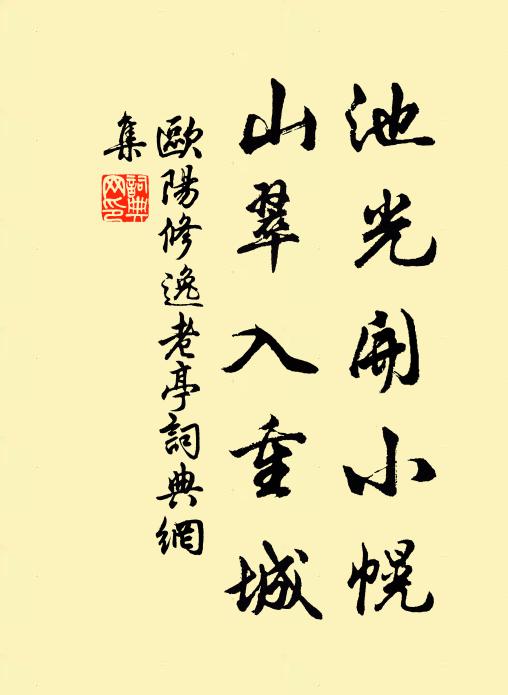 池光開小幌
山翠入重城
歐陽修逸老亭詞典網
集
詞典網印